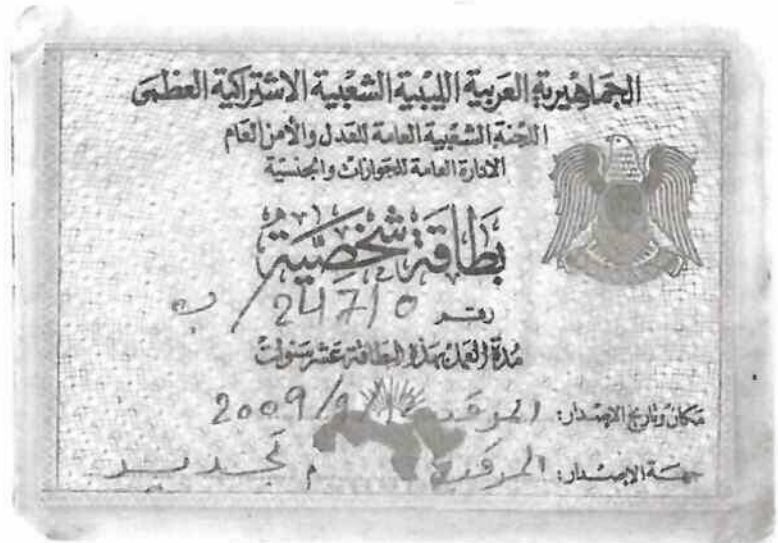 الجماهيرية العربية الليبية الشعبية الاشتراكية العظمى
اللجنة الشعبية العامة للعدل والأمن العام
الادارة العامة للجوازات والجنسية
بطاقة شخصية
رقم 24710 / ب
مدة العمل بهذه البطاقة عشر سنوات
مكان وتاريخ الاصدار: 2009/9/
جهة الاصدار: تجديد